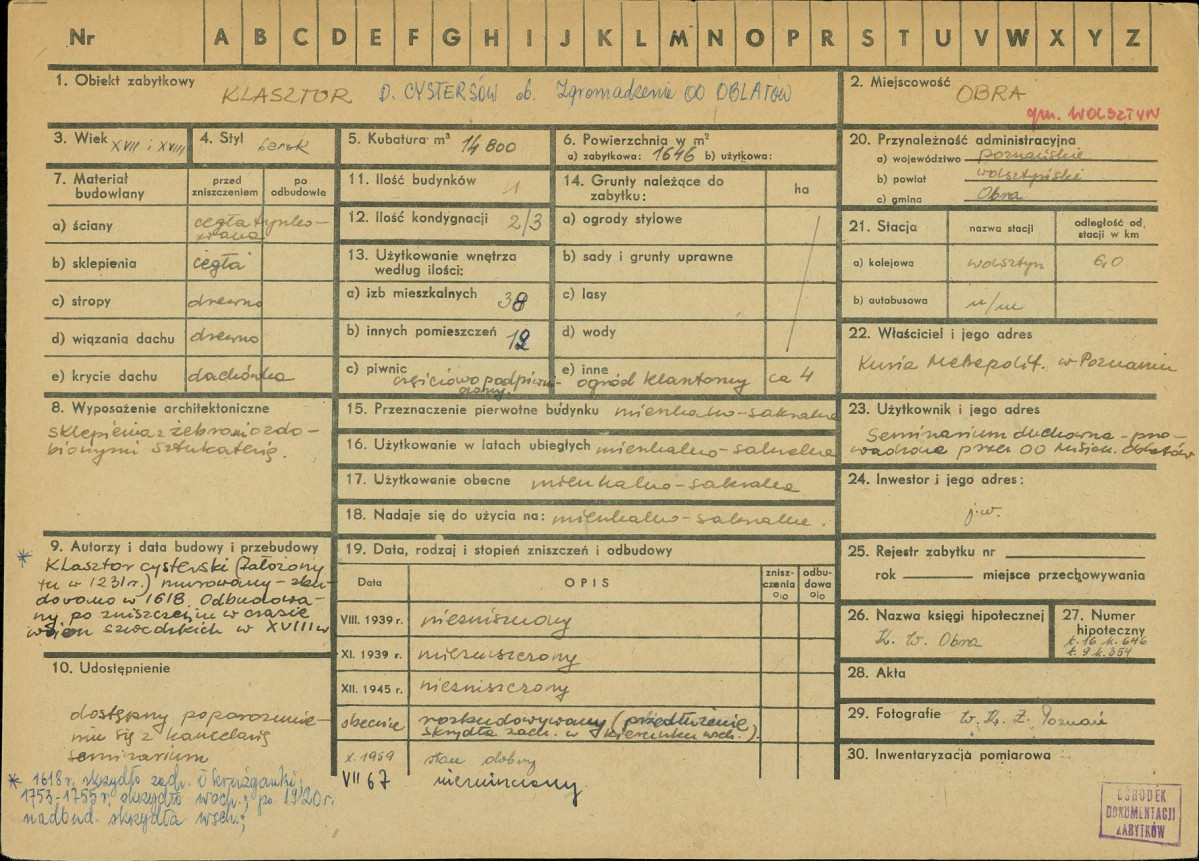 Nr A B C D E F G H I J K L M N O P R S T U V W X Y Z
1. Obiekt zabytkowy KLASZTOR P. CYSTERSÓW ob. Zgromadzenie OO OBLATÓW
2. Miejscowość OBRA
gm. WOLSZTYN
3. Wiek XVII i XVIII
4. Styl barok
5. Kubatura m³ 14 800
6. Powierzchnia w m²
a) zabytkowa: 1646 b) użytkowa:
7. Materiał budowlany
przed zniszczeniem
po odbudowie
a) ściany cegła tynko-
wana
b) sklepienia cegła
c) stropy drewno
d) wiązania dachu drewno
e) krycie dachu dachówka
8. Wyposażenie architektoniczne
sklepienia z żebrami ozdo-
bionymi sztukaterią.
* 9. Autorzy i data budowy i przebudowy
Klasztor cysterski (założony
tu w 1231 r.) murowany - zbu-
dowano w 1618. Odbudowa-
ny po zniszczeniu w czasie
wojen szwedzkich w XVIII w
10. Udostępnienie
dostępny po porozumie-
niu się z kancelarią
seminarium
* 1618 r. skrzydło zach. i krużganki;
1753-1755 r. skrzydło wsch.; po 1920 r.
nadbud. skrzydła wsch.;
11. Ilość budynków 1
12. Ilość kondygnacji 2/3
13. Użytkowanie wnętrza
według ilości:
a) izb mieszkalnych 38
b) innych pomieszczeń 12
c) piwnic częściowo podpiwni-
czony.
14. Grunty należące do
zabytku:
ha
a) ogrody stylowe
b) sady i grunty uprawne
c) lasy
d) wody
e) inne ogród klasztorny ca 4
15. Przeznaczenie pierwotne budynku mieszkalno-sakralne
16. Użytkowanie w latach ubiegłych mieszkalno-sakralne
17. Użytkowanie obecne mieszkalno-sakralne
18. Nadaje się do użycia na: mieszkalno-sakralne.
19. Data, rodzaj i stopień zniszczeń i odbudowy
Data
OPIS
znisz-
czenia
%
odbu-
dowa
%
VIII. 1939 r. niezniszczony
XI. 1939 r. niezniszczony
XII. 1945 r. niezniszczony
obecnie rozbudowywany (przedłużenie
skrzydła zach. w kierunku wsch.).
X. 1959 stan dobry
VII 67 niezniszczony
20. Przynależność administracyjna
a) województwo poznańskie
b) powiat wolsztyński
c) gmina Obra
21. Stacja
nazwa stacji
odległość od
stacji w km
a) kolejowa Wolsztyn 6,0
b) autobusowa n/m
22. Właściciel i jego adres
Kuria Metropolit. w Poznaniu
23. Użytkownik i jego adres
Seminarium duchowne - pro-
wadzone przez OO Misjon. Oblatów
24. Inwestor i jego adres:
j.w.
25. Rejestr zabytku nr
rok miejsce przechowywania
26. Nazwa księgi hipotecznej
K. W. Obra
27. Numer
hipoteczny
t. 16 k. 646
t. 9 k. 354
28. Akta
29. Fotografie W. K. Z. Poznań
30. Inwentaryzacja pomiarowa
OŚRODEK
DOKUMENTACJI
ZABYTKÓW